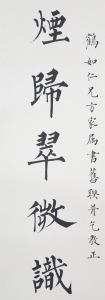 鶴如仁兄方家属書舊聯并乞教正
煙歸翠微識